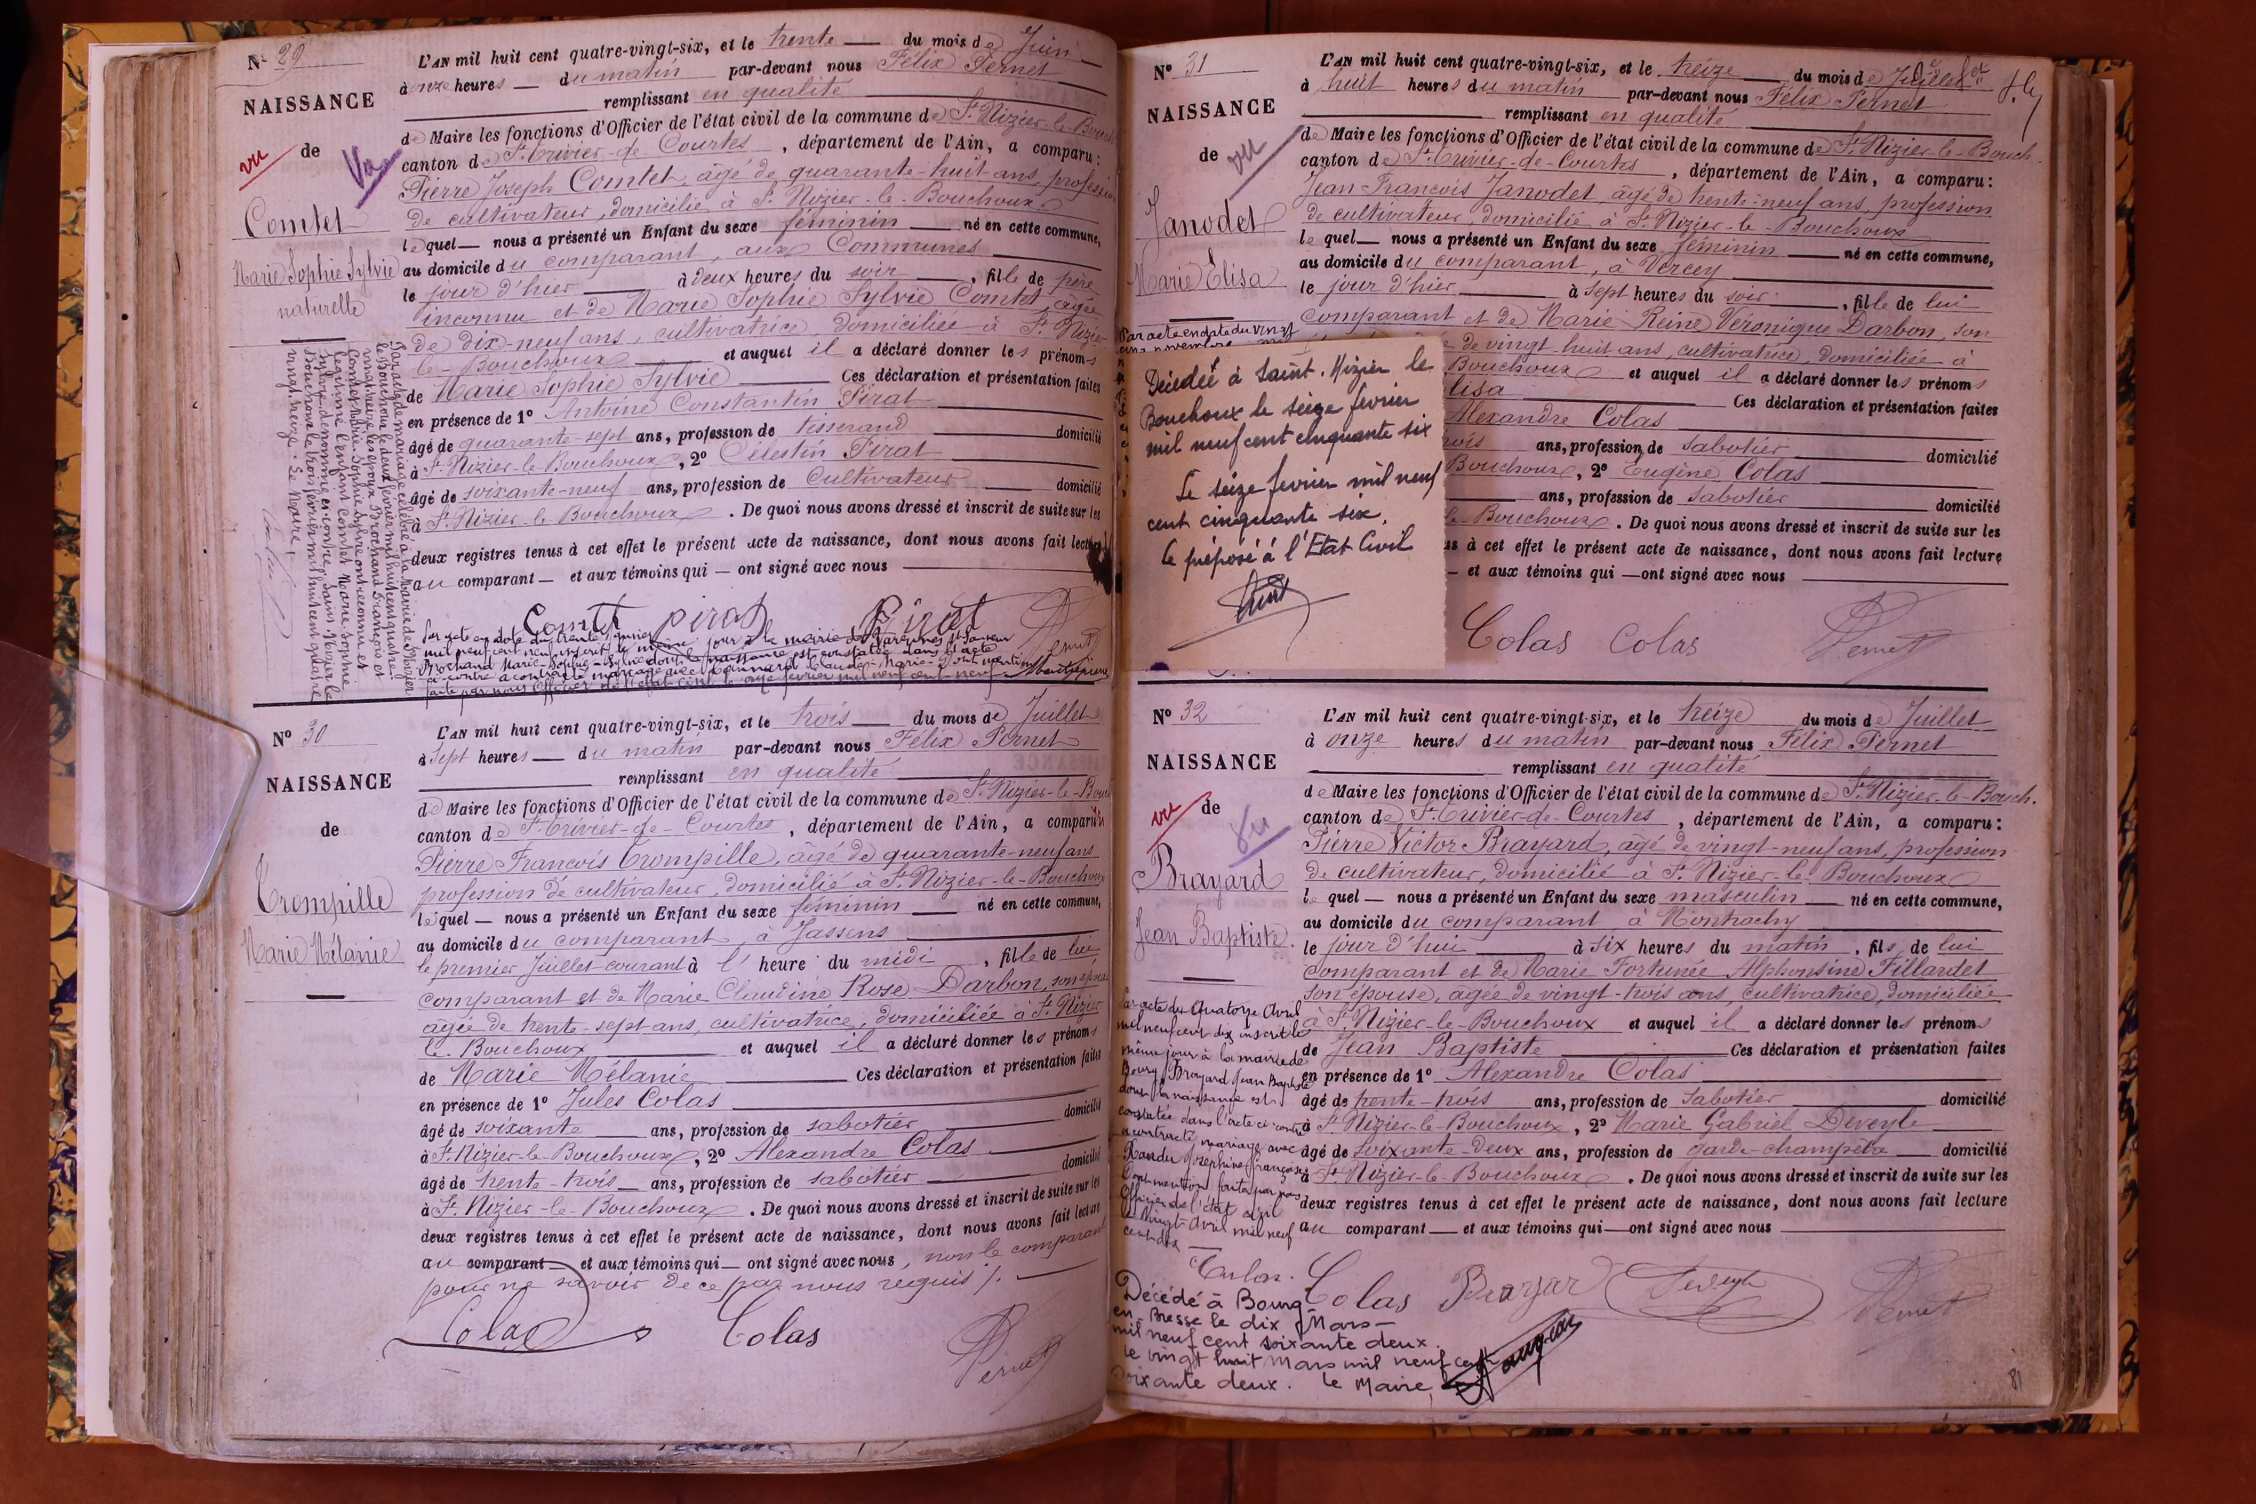 Nº 29
NAISSANCE
de
vu
Vu
Comtet
Marie Sophie Sylvie
naturelle
L'AN mil huit cent quatre-vingt-six, et le trente du mois de Juin
à onze heures du matin par-devant nous Félix Pernet
remplissant en qualité
de Maire les fonctions d'Officier de l'état civil de la commune de St. Nizier-le-Bouch
canton de St. Trivier-de-Courtes, département de l'Ain, a comparu :
Pierre Joseph Comtet, âgé de quarante-huit ans, profession
de cultivateur, domicilié à St. Nizier-le-Bouchoux
lequel nous a présenté un Enfant du sexe féminin né en cette commune,
au domicile du comparant, aux Communes
le jour d'hier à deux heures du soir, fille de père
inconnu et de Marie Sophie Sylvie Comtet, âgée
de dix-neuf ans, cultivatrice, domiciliée à St. Nizier
le-Bouchoux et auquel il a déclaré donner les prénoms
de Marie Sophie Sylvie Ces déclaration et présentation faites
en présence de 1º Antoine Constantin Pirat
âgé de quarante-sept ans, profession de tisserand domicilié
à St. Nizier-le-Bouchoux, 2º Célestin Pirat
âgé de soixante-neuf ans, profession de cultivateur domicilié
à St. Nizier-le-Bouchoux. De quoi nous avons dressé et inscrit de suite sur les
deux registres tenus à cet effet le présent acte de naissance, dont nous avons fait lecture
au comparant et aux témoins qui ont signé avec nous
Comtet Pirat Pirat Pernet
Par acte de mariage célébré à la Mairie de St Nizier
le Bouchoux le deux février mil huit cent quatre-
vingt treize les époux Brochand François et
Comtet Marie Sophie Sylvie ont reconnu et
légitimé l'enfant Comtet Marie Sophie
Sylvie dénommé ci-contre. Saint Nizier le
Bouchoux le trois février mil huit cent quatre
vingt treize. Le Maire,
Par acte en date du trente janvier
mil neuf cent neuf inscrit le même jour à la mairie de Varennes St Sauveur
Brochand Marie-Sophie-Sylvie dont la naissance est constatée dans l'acte
ci-contre a contracté mariage avec
faite par nous Officier de l'état civil le onze février mil neuf cent neuf
Nº 30
NAISSANCE
de
Trompille
Marie Mélanie
L'AN mil huit cent quatre-vingt-six, et le trois du mois de Juillet
à sept heures du matin par-devant nous Félix Pernet
remplissant en qualité
de Maire les fonctions d'Officier de l'état civil de la commune de St. Nizier-le-Bouch
canton de St. Trivier-de-Courtes, département de l'Ain, a comparu
Pierre François Trompille, âgé de quarante-neuf ans
profession de cultivateur, domicilié à St. Nizier-le-Bouchoux
lequel nous a présenté un Enfant du sexe féminin né en cette commune,
au domicile du comparant, à Jassens
le premier Juillet courant à l' heure du midi, fille de lui
comparant et de Marie Claudine Rose Darbon, son épouse
âgée de trente-sept ans, cultivatrice, domiciliée à St. Nizier
le Bouchoux et auquel il a déclaré donner les prénoms
de Marie Mélanie Ces déclaration et présentation faites
en présence de 1º Jules Colas
âgé de soixante ans, profession de sabotier domicilié
à St. Nizier-le-Bouchoux, 2º Alexandre Colas
âgé de trente-trois ans, profession de sabotier domicilié
à St. Nizier-le-Bouchoux. De quoi nous avons dressé et inscrit de suite sur les
deux registres tenus à cet effet le présent acte de naissance, dont nous avons fait lecture
au comparant et aux témoins qui ont signé avec nous, non le comparant
pour ne savoir de ce par nous requis /.
Colas Colas Pernet
Nº 31
NAISSANCE
de
vu
Janodet
Marie Élisa
Par acte en date du vingt
L'AN mil huit cent quatre-vingt-six, et le treize du mois de Juillet
à huit heures du matin par-devant nous Félix Pernet
remplissant en qualité
de Maire les fonctions d'Officier de l'état civil de la commune de St. Nizier-le-Bouch.
canton de St. Trivier-de-Courtes, département de l'Ain, a comparu:
Jean François Janodet, âgé de trente-neuf ans, profession
de cultivateur, domicilié à St. Nizier-le-Bouchoux
lequel nous a présenté un Enfant du sexe féminin né en cette commune,
au domicile du comparant, à Vercey
le jour d'hier à sept heures du soir, fille de lui
comparant et de Marie Reine Véronique Darbon, son
de vingt-huit ans, cultivatrice, domiciliée à
Bouchoux et auquel il a déclaré donner les prénoms
lisa Ces déclaration et présentation faites
Alexandre Colas
rois ans, profession de sabotier domicilié
Bouchoux, 2º Eugène Colas
ans, profession de sabotier domicilié
le-Bouchoux. De quoi nous avons dressé et inscrit de suite sur les
us à cet effet le présent acte de naissance, dont nous avons fait lecture
et aux témoins qui ont signé avec nous
Colas Colas Pernet
Décédée à Saint. Nizier le
Bouchoux le seize février
mil neuf cent cinquante six
Le seize février mil neuf
cent cinquante six.
Le préposé à l'Etat Civil
Nº 32
NAISSANCE
de
vu
Vu
Brayard
Jean Baptiste.
L'AN mil huit cent quatre-vingt-six, et le treize du mois de Juillet
à onze heures du matin par-devant nous Félix Pernet
remplissant en qualité
de Maire les fonctions d'Officier de l'état civil de la commune de St. Nizier-le-Bouch.
canton de St. Trivier-de-Courtes, département de l'Ain, a comparu:
Pierre Victor Brayard, âgé de vingt-neuf ans, profession
de cultivateur, domicilié à St. Nizier-le-Bouchoux
lequel nous a présenté un Enfant du sexe masculin né en cette commune,
au domicile du comparant à Montrachy
le jour d'hui à six heures du matin, fils de lui
comparant et de Marie Fortunée Alphonsine Fillardet
son épouse, âgée de vingt-trois ans, cultivatrice, domiciliée
à St. Nizier-le-Bouchoux et auquel il a déclaré donner les prénoms
de Jean Baptiste Ces déclaration et présentation faites
en présence de 1º Alexandre Colas
âgé de trente-trois ans, profession de sabotier domicilié
à St. Nizier-le-Bouchoux, 2º Marie Gabriel Deveyle
âgé de soixante-deux ans, profession de garde-champêtre domicilié
à St. Nizier-le-Bouchoux. De quoi nous avons dressé et inscrit de suite sur les
deux registres tenus à cet effet le présent acte de naissance, dont nous avons fait lecture
au comparant et aux témoins qui ont signé avec nous
Colas Brayar Deveyle Pernet
Par acte du Quatorze Avril
mil neuf cent dix inscrit le
même jour à la mairie de
Bourg, Brayard Jean Baptiste
dont la naissance est
constatée dans l'acte ci contre
a contracté mariage avec
Joséphine Françoise
Dont mention faite par nous
Officier de l'état civil
le Vingt Avril mil neuf
cent dix
Décédé à Bourg-
en-Bresse le dix Mars
mil neuf cent soixante deux.
le vingt huit Mars mil neuf cent
soixante deux. Le Maire,
81